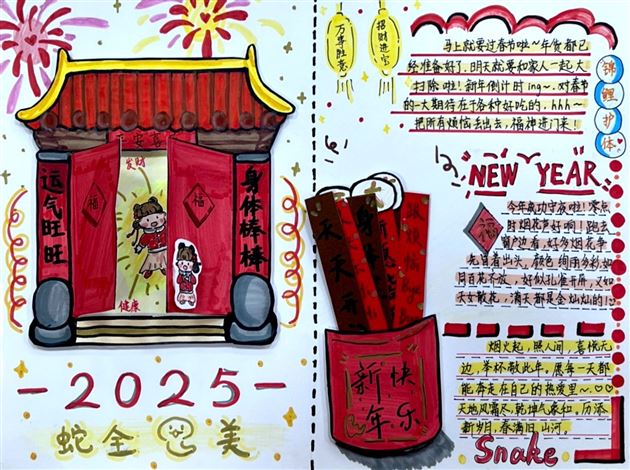 发财
运气旺旺
福
福
身体棒棒
健康
-2025-
蛇全美
万事胜意
招财进宝
马上就要过春节啦~年货都已
经准备好了,明天就要和家人一起大
扫除啦!新年倒计时ing~.对春节
的一大期待在于各种好吃的,hhh~
把所有烦恼丢出去,福神进门来!
锦鲤护体
NEW YEAR
福
今年成功守夜啦!零点
时烟花声好响!跑去
窗户边看,好多烟花争
先冒着出头,颜色绚丽多彩如
同百花齐放,好似孔雀开屏,又如
天女散花,满天都是金灿灿的!
新年
快乐
烟火起,照人间,喜悦无
边,举杯敬此年。愿每一天都
能奔走在自己的热爱里~♡♡
天地风霜尽,乾坤气象和,历添
新岁月,春满旧山河。
Snake